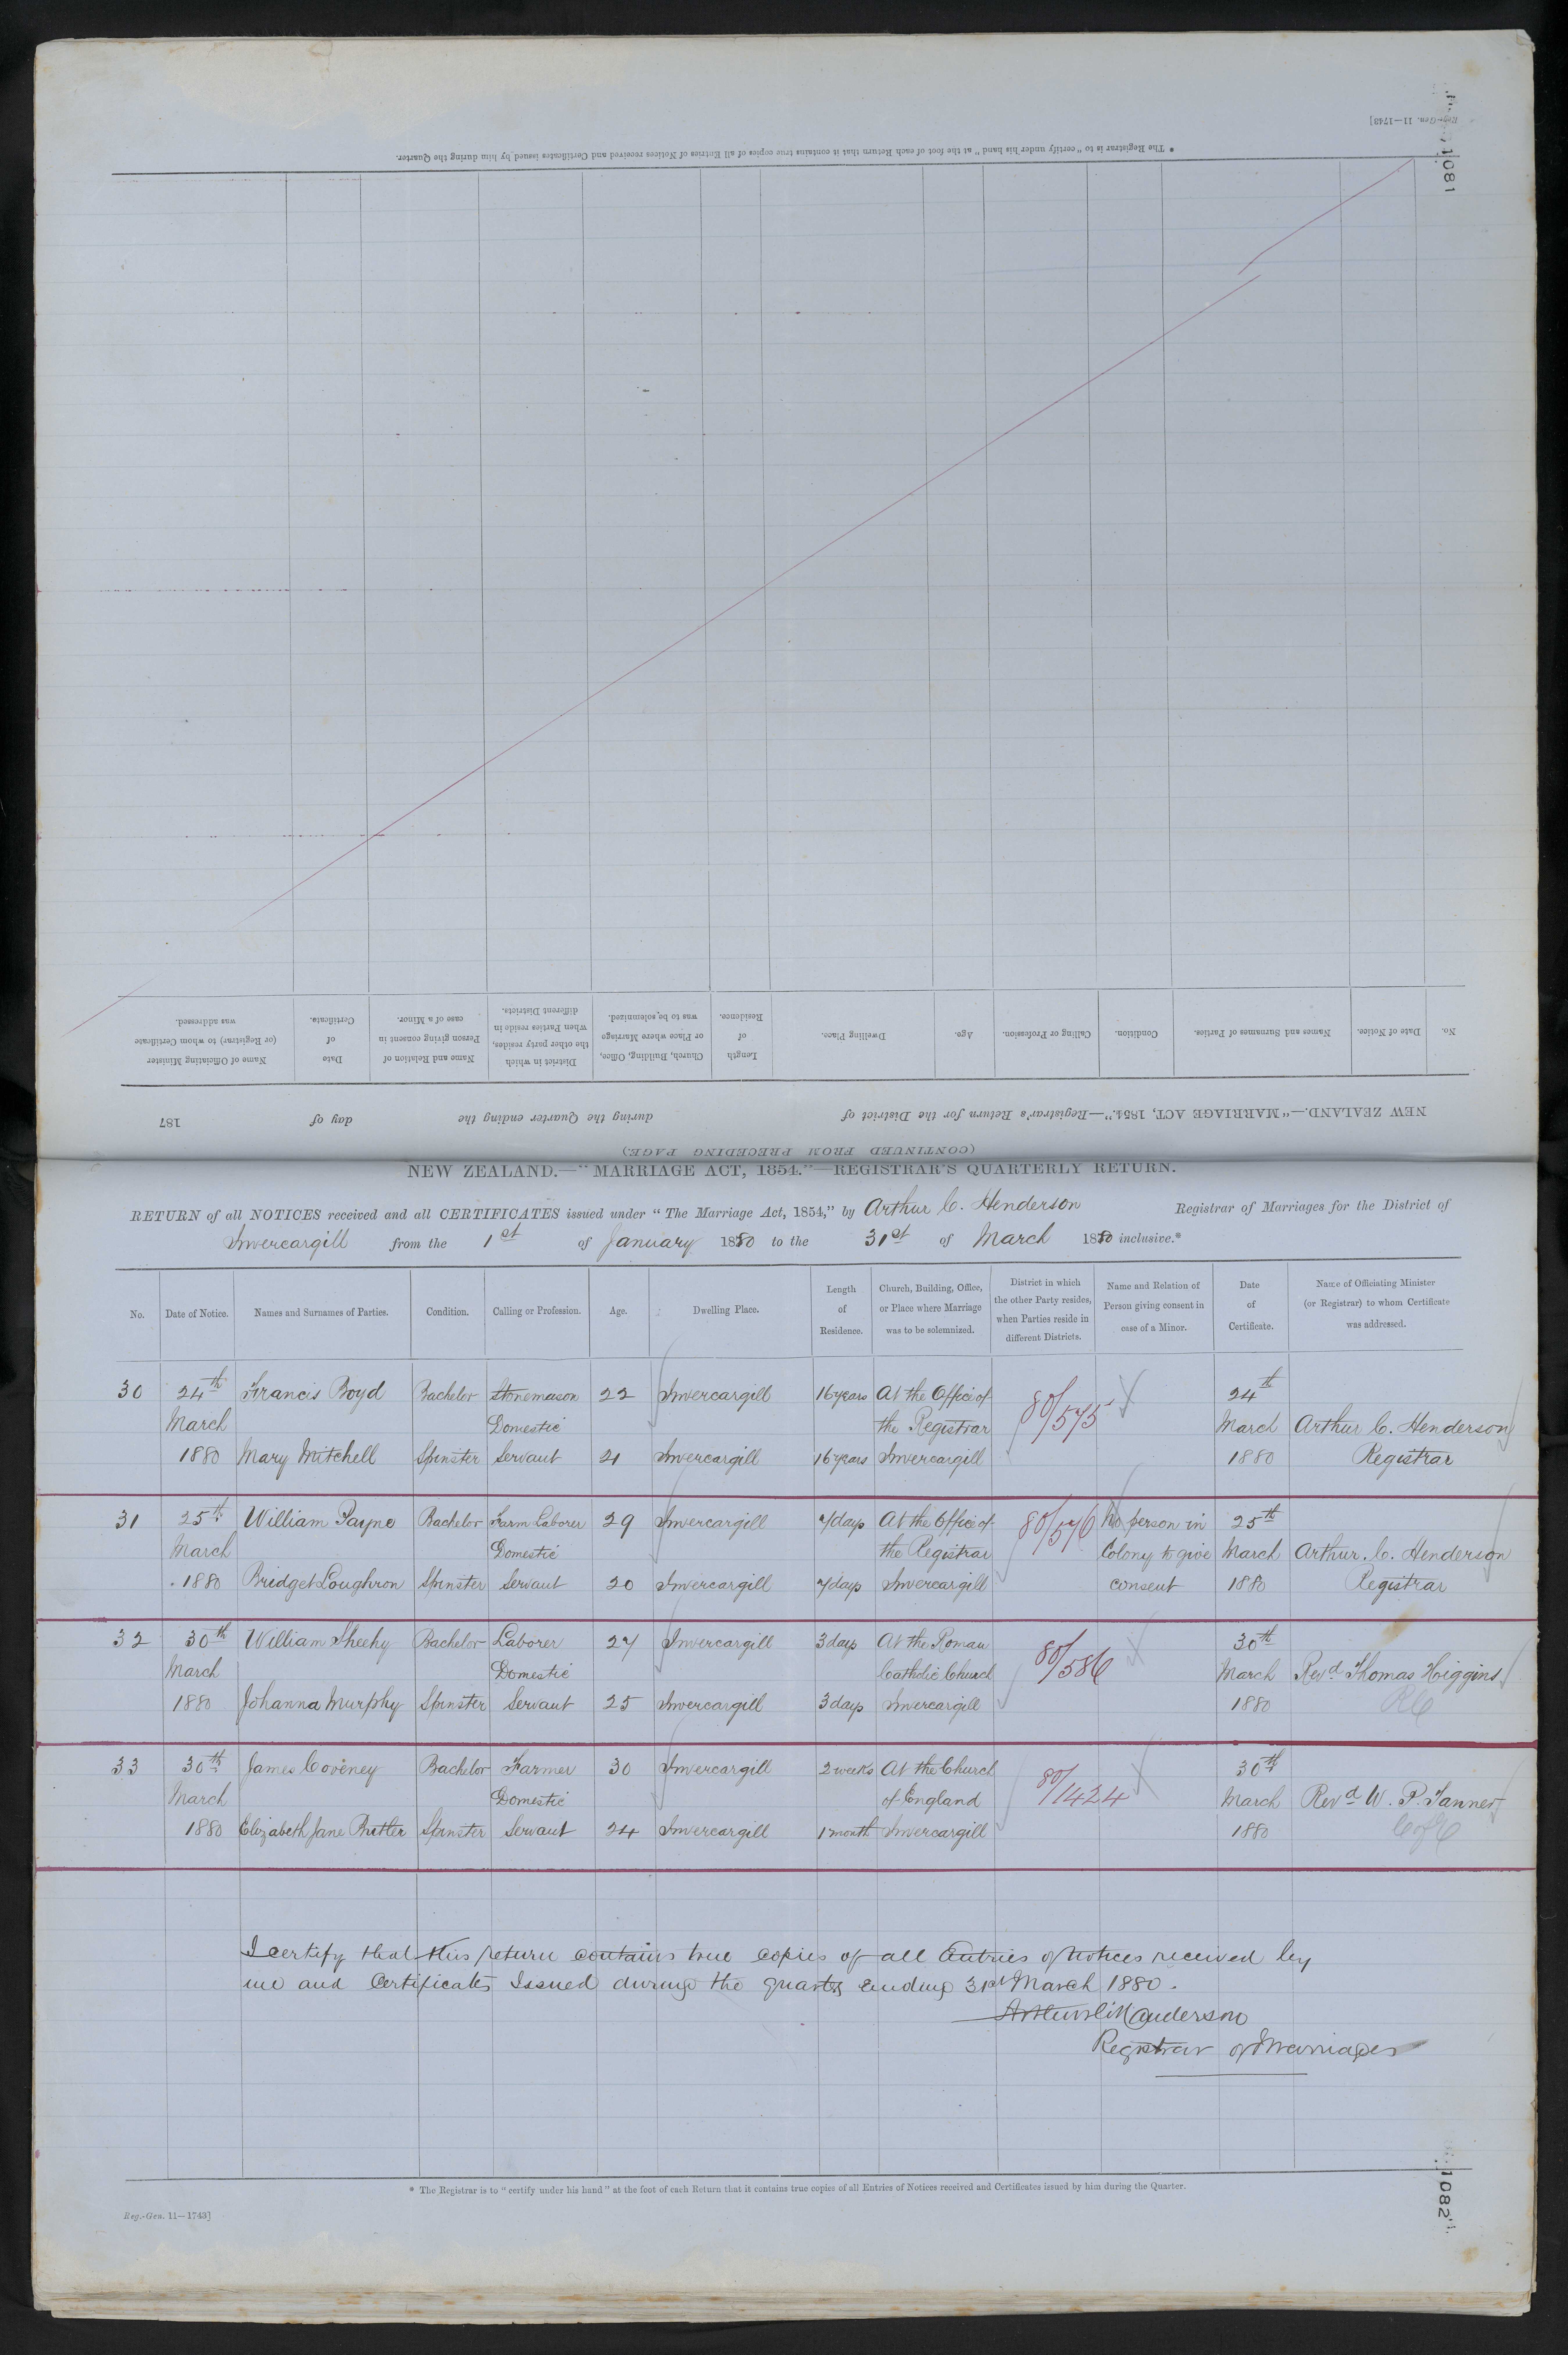 Reg.-Gen. 11—1743]
1081
* The Registrar is to "certify under his hand" at the foot of each Return that it contains true copies of all Entries of Notices received and Certificates issued by him during the Quarter.
No. Date of Notice. Names and Surnames of Parties. Condition. Calling or Profession. Age. Dwelling Place. Length of Residence. Church, Building, Office, or Place where Marriage was to be solemnized. District in which the other party resides, when Parties reside in different Districts. Name and Relation of Person giving consent in case of a Minor. Date of Certificate. Name of Officiating Minister (or Registrar) to whom Certificate was addressed.
NEW ZEALAND.—"MARRIAGE ACT, 1854."—Registrar's Return for the District of during the Quarter ending the day of 187
(CONTINUED FROM PRECEDING PAGE)
NEW ZEALAND.—"MARRIAGE ACT, 1854."—REGISTRAR'S QUARTERLY RETURN.
RETURN of all NOTICES received and all CERTIFICATES issued under "The Marriage Act, 1854," by Arthur C. Henderson Registrar of Marriages for the District of
Invercargill from the 1st of January 1880 to the 31st of March 1880 inclusive.*
No. Date of Notice. Names and Surnames of Parties. Condition. Calling or Profession. Age. Dwelling Place. Length of Residence. Church, Building, Office, or Place where Marriage was to be solemnized. District in which the other Party resides, when Parties reside in different Districts. Name and Relation of Person giving consent in case of a Minor. Date of Certificate. Name of Officiating Minister (or Registrar) to whom Certificate was addressed.
30 24th Francis Boyd Bachelor Stonemason 22 Invercargill 16 years At the Office of 80/575 24th
March Domestic the Registrar March Arthur C. Henderson
1880 Mary Mitchell Spinster Servant 21 Invercargill 16 years Invercargill 1880 Registrar
31 25th William Payne Bachelor Farm Laborer 29 Invercargill 7 days At the Office of 80/576 No person in 25th
March Domestic the Registrar Colony to give March Arthur. C. Henderson
1880 Bridget Loughron Spinster Servant 20 Invercargill 7 days Invercargill consent 1880 Registrar
32 30th William Sheehy Bachelor Laborer 27 Invercargill 3 days At the Roman 80/586 30th
March Domestic Catholic Church March Revd. Thomas Higgins
1880 Johanna Murphy Spinster Servant 25 Invercargill 3 days Invercargill 1880 RC
33 30th James Coveney Bachelor Farmer 30 Invercargill 2 weeks At the Church 80/1424 30th
March Domestic of England March Revd W. P. Tanner
1880 Elizabeth Jane Spinster Servant 24 Invercargill 1 month Invercargill 1880 C of E
I certify that this return contains true copies of all Entries of Notices received by
me and Certificates Issued during the quarter ending 31st March 1880.
Registrar of Marriages
* The Registrar is to "certify under his hand" at the foot of each Return that it contains true copies of all Entries of Notices received and Certificates issued by him during the Quarter.
Reg.-Gen. 11—1743]
1082